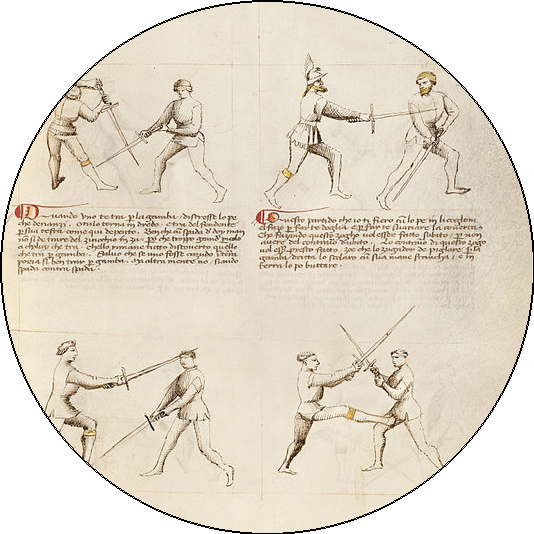 Quando uno te tra p la gamba discresse lo pe
che denanzi. O tu lo torna in dredo. E tra del fendente
p sua testa come qui depento. Ben che cū spada de doy man
no si de trare del zinochio in za. p che tropo grand piculo
a chluy che tra. Chello rimane tutto discoverto quello
che tra p gamba. Salvo che se uno fosse cazudo in terra
poria si ben trar p gamba. Ma altra mente no, siando
spada contra spada.
Questo partido che io ti fiero cū lo pe in li coglioni
el fazo p farte doglia e p farte suariare la coverta.
Che fazando questo zogho vol esser fatto subito. p non
avere del contrario dubito. Lo contrario di questo zogo
vol esser presto fatto, zoe che lo zugadore de pigliare p la
gamba dritta lo scolaro cū sua mane stancha, e in
terra lo po buttare.